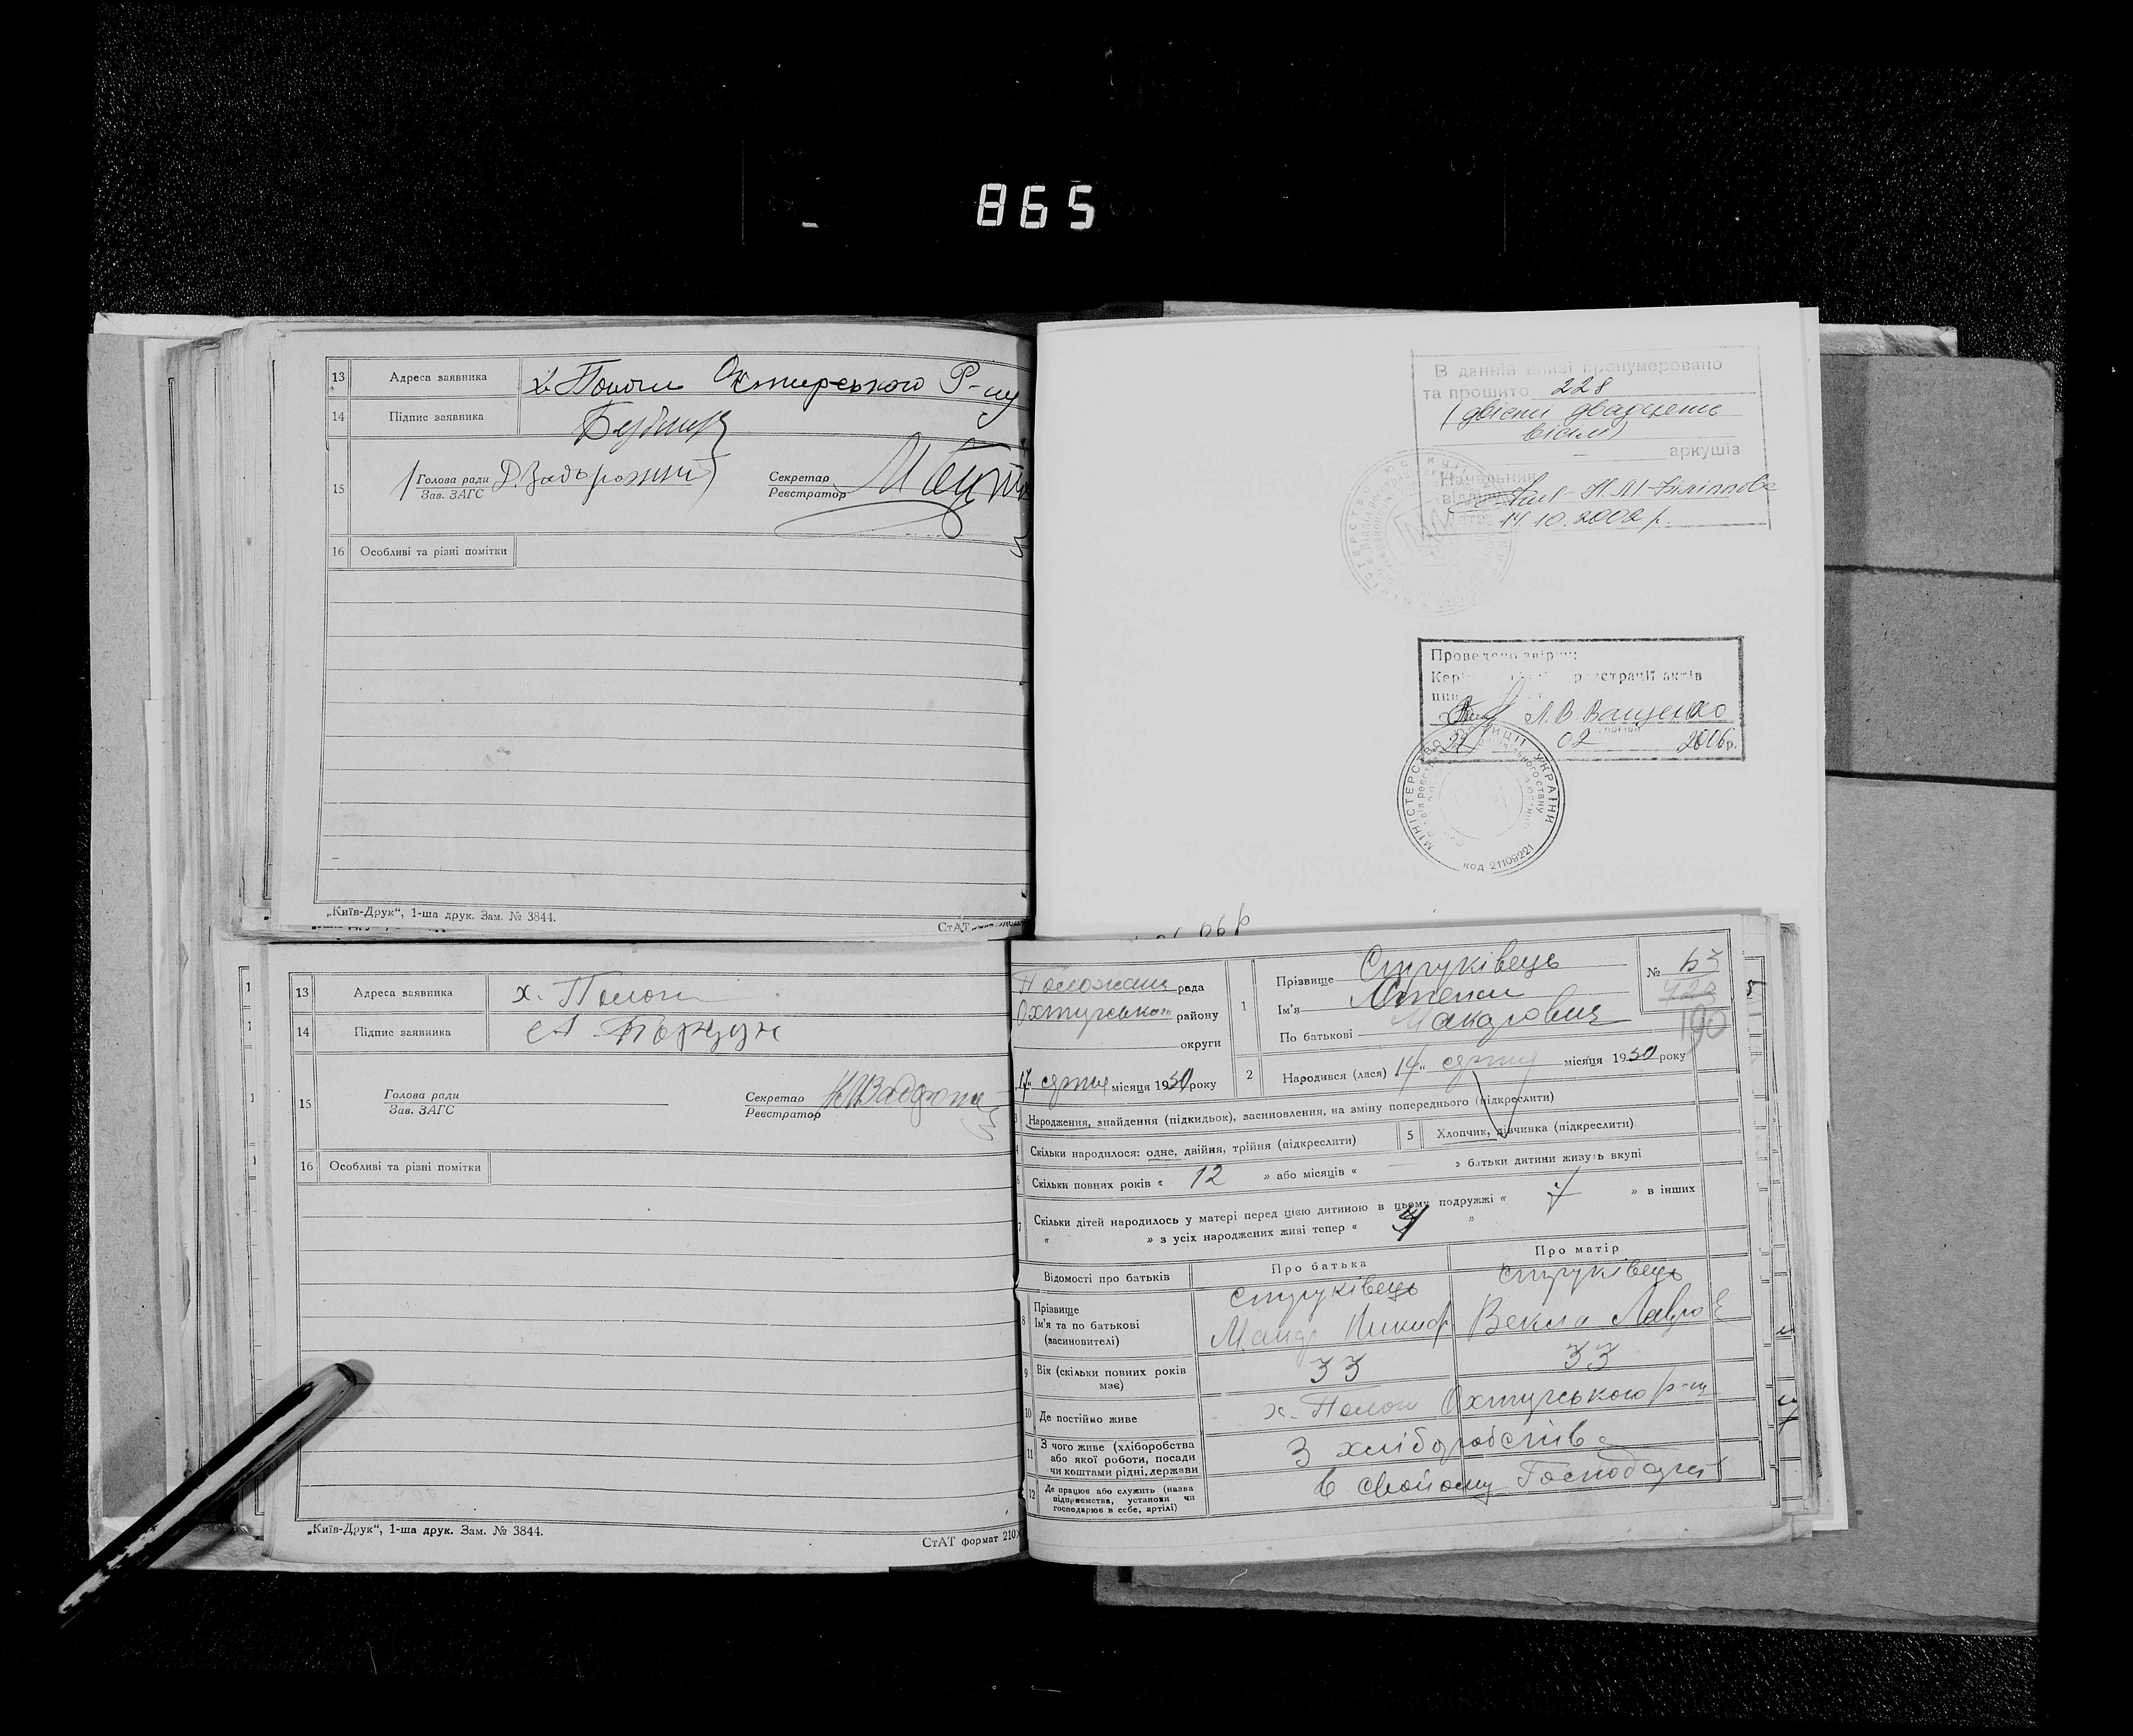 865
13 Адреса заявника х. Пологи Охтирського Р-ну
14 Підпис заявника
15 Голова ради Д. Задорожний Секретар
Зав. ЗАГС Реєстратор
16 Особливі та різні помітки
„Київ-Друк“, 1-ша друк. Зам. № 3844.
СтАТ
В данній книзі пронумеровано
та прошито 228
(двісті двадцять
вісім)
аркушів
Начальник
відділу Н. М. Філіппова
14.10.2002 р.
Проведено звірку:
реєстрації актів
Л. В. Ващенко
02 2006 р.
МІНІСТЕРСТВО ЮСТИЦІЇ УКРАЇНИ
код 21109221
06 р
13 Адреса заявника х. Пологи
14 Підпис заявника
15 Голова ради Секретар
Зав. ЗАГС Реєстратор
16 Особливі та різні помітки
„Київ-Друк“, 1-ша друк. Зам. № 3844.
СтАТ формат 210
рада
Охтирського району
округи
„17“ серпня місяця 1930 року
1 Прізвище Струківець
Ім'я Степан
По батькові Макарович
№ 63
423
190
2 Народився (лася) 14 серпня місяця 1930 року
3 Народження, знайдення (підкидьок), засиновлення, на зміну попереднього (підкреслити)
4 Скільки народилося: одне, двійня, трійня (підкреслити) 5 Хлопчик, дівчинка (підкреслити)
6 Скільки повних років « 12 » або місяців « » батьки дитини живуть вкупі
7 Скільки дітей народилось у матері перед цією дитиною в цьому подружжі « » в інших
« » з усіх народжених живі тепер « »
Відомості про батьків Про батька Про матір
8 Прізвище Струківець Струківець
Ім'я та по батькові Макар Никиф Векла Лавро
(засиновителі)
9 Вік (скільки повних років має) 33 33
10 Де постійно живе х. Пологи Охтирського р-ну
11 З чого живе (хліборобства
або якої роботи, посади
чи коштами рідні, держави З хліборобства
12 Де працює або служить (назва
підприємства, установи чи
господарює в себе, артілі) В свойому Господарст